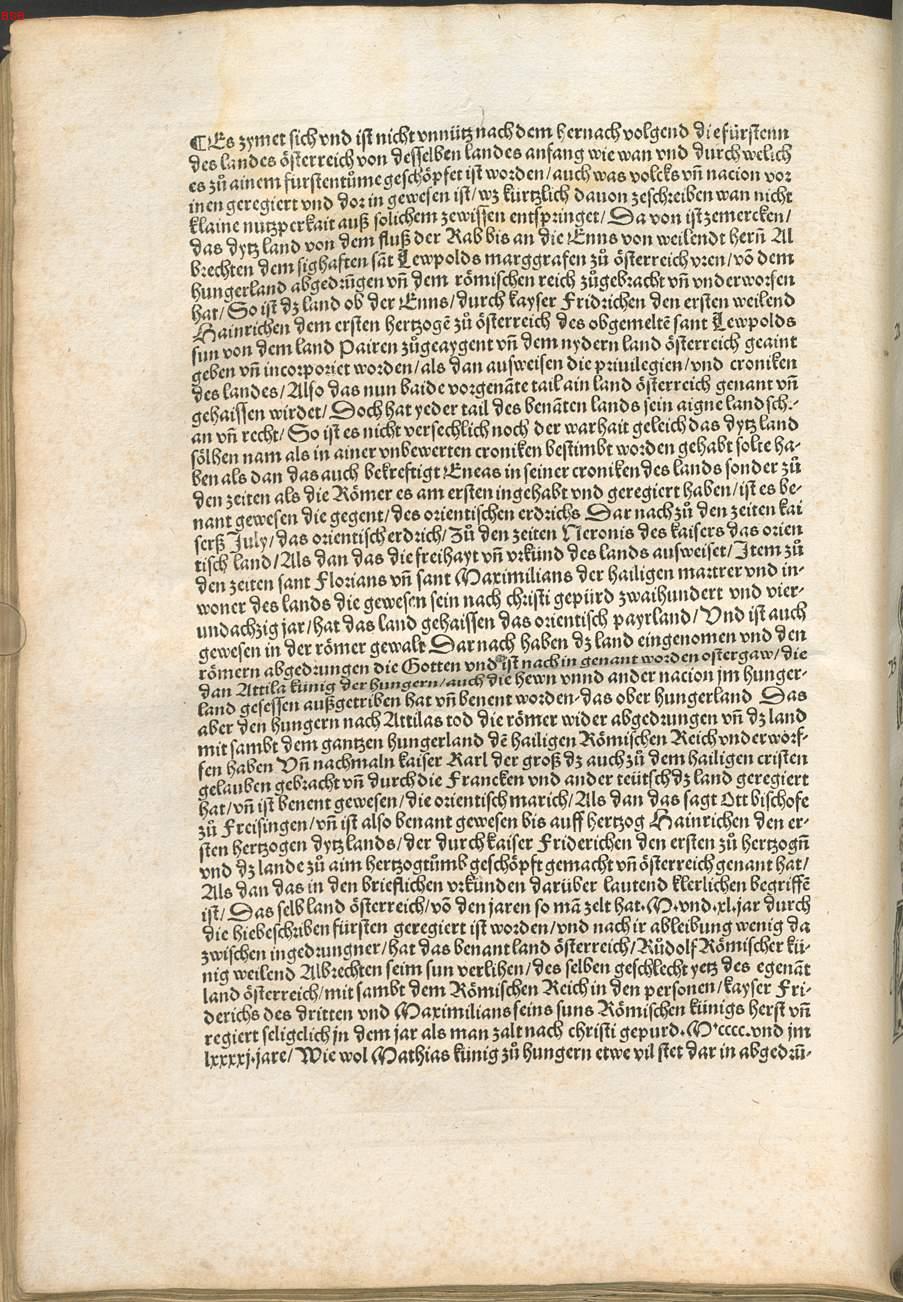 BSB
¶Es zymet sich vnd ist nicht vnnütz nach dem hernach volgend die fürstenn
des landes österreich von desselben landes anfang wie wan vnd durch welich
es zů ainem fürstentůme geschöpfet ist worden/auch was volcks vñ nacion vor
inen geregiert vnd dor in gewesen ist/wz kürtzlich dauon zeschreiben wan nicht
klaine nutzperkait auß solichem zewissen entspringet/Da von ist zemercken/
das dytz land von dem fluß der Rab bis an die Enns von weilendt herñ Al
brechten dem sighaften sãt Lewpolds marggrafen zů österreich vren/võ dem
hungerland abgedrũgen vñ dem römischen reich zůgebracht vñ vnderworfen
hat/So ist dz land ob der Enns/durch kayser Fridrichen den ersten weilend
Hainrichen dem ersten hertzogẽ zů österreich des obgemeltẽ sant Lewpolds
sun von dem land Pairen zůgeaygent vñ dem nydern land österreich geaint
geben vñ incorporiet worden/als dan ausweisen die priuilegien/vnd croniken
des landes/Also das nun baide vorgenãte tail ain land österreich genant vñ
gehaissen wirdet/Doch hat yeder tail des benãten lands sein aigne landsch.-
an vñ recht/So ist es nicht versechlich noch der warhait geleich das dytz land
sölhen nam als in ainer vnbewerten croniken bestimbt worden gehabt solte ha-
ben als dan das auch bekreftigt Eneas in seiner croniken des lands sonder zů
den zeiten als die Römer es am ersten ingehabt vnd geregiert haben/ist es be-
nant gewesen die gegent/des orientischen erdrichs Dar nach zů den zeiten kai
serß July/das orientisch erdrich/Zů den zeiten Neronis des kaisers das orien
tisch land/Als dan das die freihayt vñ vrkünd des lands ausweiset/Item zů
den zeiten sant Florians vñ sant Maximilians der hailigen martrer vnd in-
woner des lands die gewesen sein nach christi gepürd zwaihundert vnd vier-
undachzig jar/hat das land gehaissen das orientisch payrland/Vnd ist auch
gewesen in der römer gewalt Darnach haben dz land eingenomen vnd den
römern abgedrungen die Gotten vnd ist nach in genant worden ostergaw/die
dan Attila künig der hungern/auch die hewn vnnd ander nacion jm hunger-
land gesessen außgetriben hat vñ benent worden-das ober hungerland Das
aber den hungern nach Attilas tod die römer wider abgedrungen vñ dz land
mit sambt dem gantzen hungerland dẽ hailigen Römischen Reich vnderworf-
fen haben Vñ nachmaln kaiser Karl der groß dz auch zů dem hailigen cristen
gelauben gebracht vñ durch die Francken vnd ander teütsch dz land geregiert
hat/vñ ist benent gewesen/die orientisch marich/Als dan das sagt Ott bischofe
zů Freisingen/vñ ist also benant gewesen bis auff hertzog Hainrichen den er-
sten hertzogen dytz lands/der durch kaiser Friderichen den ersten zů hertzogñ
vnd dz lande zů aim hertzogtůmb geschöpft gemacht vñ österreich genant hat/
Als dan das in den brieflichen vrkünden darüber lautend klerlichen begriffẽ
ist/Das selb land österreich/võ den jaren so mã zelt hat.M.vnd.xl.jar durch
die hiebeschriben fürsten geregiert ist worden/vnd nach ir ableibung wenig da
zwischen ingedrungner/hat das benant land österreich/Růdolf Römischer kü-
nig weilend Albrechten seim sun verlihen/des selben geschlecht yetz des egenãt
land österreich/mit sambt dem Römischen Reich in den personen/kayser Fri-
derichs des dritten vnd Maximilians seins suns Römischen künigs herst vñ
regiert seligclich jn dem jar als man zalt nach christi gepurd.M.cccc.vnd jm
lxxxxj.jare/Wie wol Mathias künig zů hungern etwe vil stet dar in abgedrũ-